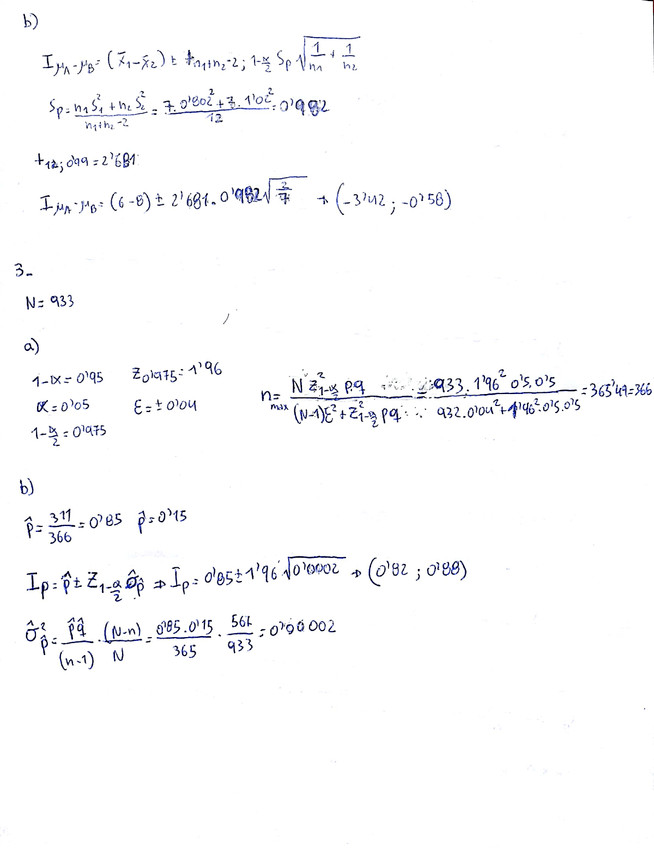 b)
I μA-μB = (x̄1-x̄2) ± t n1+n2-2; 1-α/2 Sp √(1/n1 + 1/n2)
Sp = (n1 S1² + n2 S2²)/(n1+n2-2) = (7·0'802² + 7·1'02²)/12 = 0'982
t12; 0'99 = 2'681
I μA-μB = (6-8) ± 2'681·0'982 √(2/7) → (-3'42 ; -0'58)
3-
N = 933
a)
1-α = 0'95 Z0'975 = 1'96
α = 0'05 ε = ±0'04
1-α/2 = 0'975
n max = (N Z²1-α/2 p·q)/((N-1)ε² + Z²1-α/2 pq) = (933·1'96² 0'5·0'5)/(932·0'04² + 1'96²·0'5·0'5) = 365'49 = 366
b)
p̂ = 311/366 = 0'85 p̂ = 0'15
Ip = p̂ ± Z1-α/2 σ̂p̂ ⇒ Ip = 0'85 ± 1'96 √0'0002 → (0'82 ; 0'88)
σ̂²p̂ = p̂q̂/(n-1) · (N-n)/N = 0'85·0'15/365 · 567/933 = 0'00002